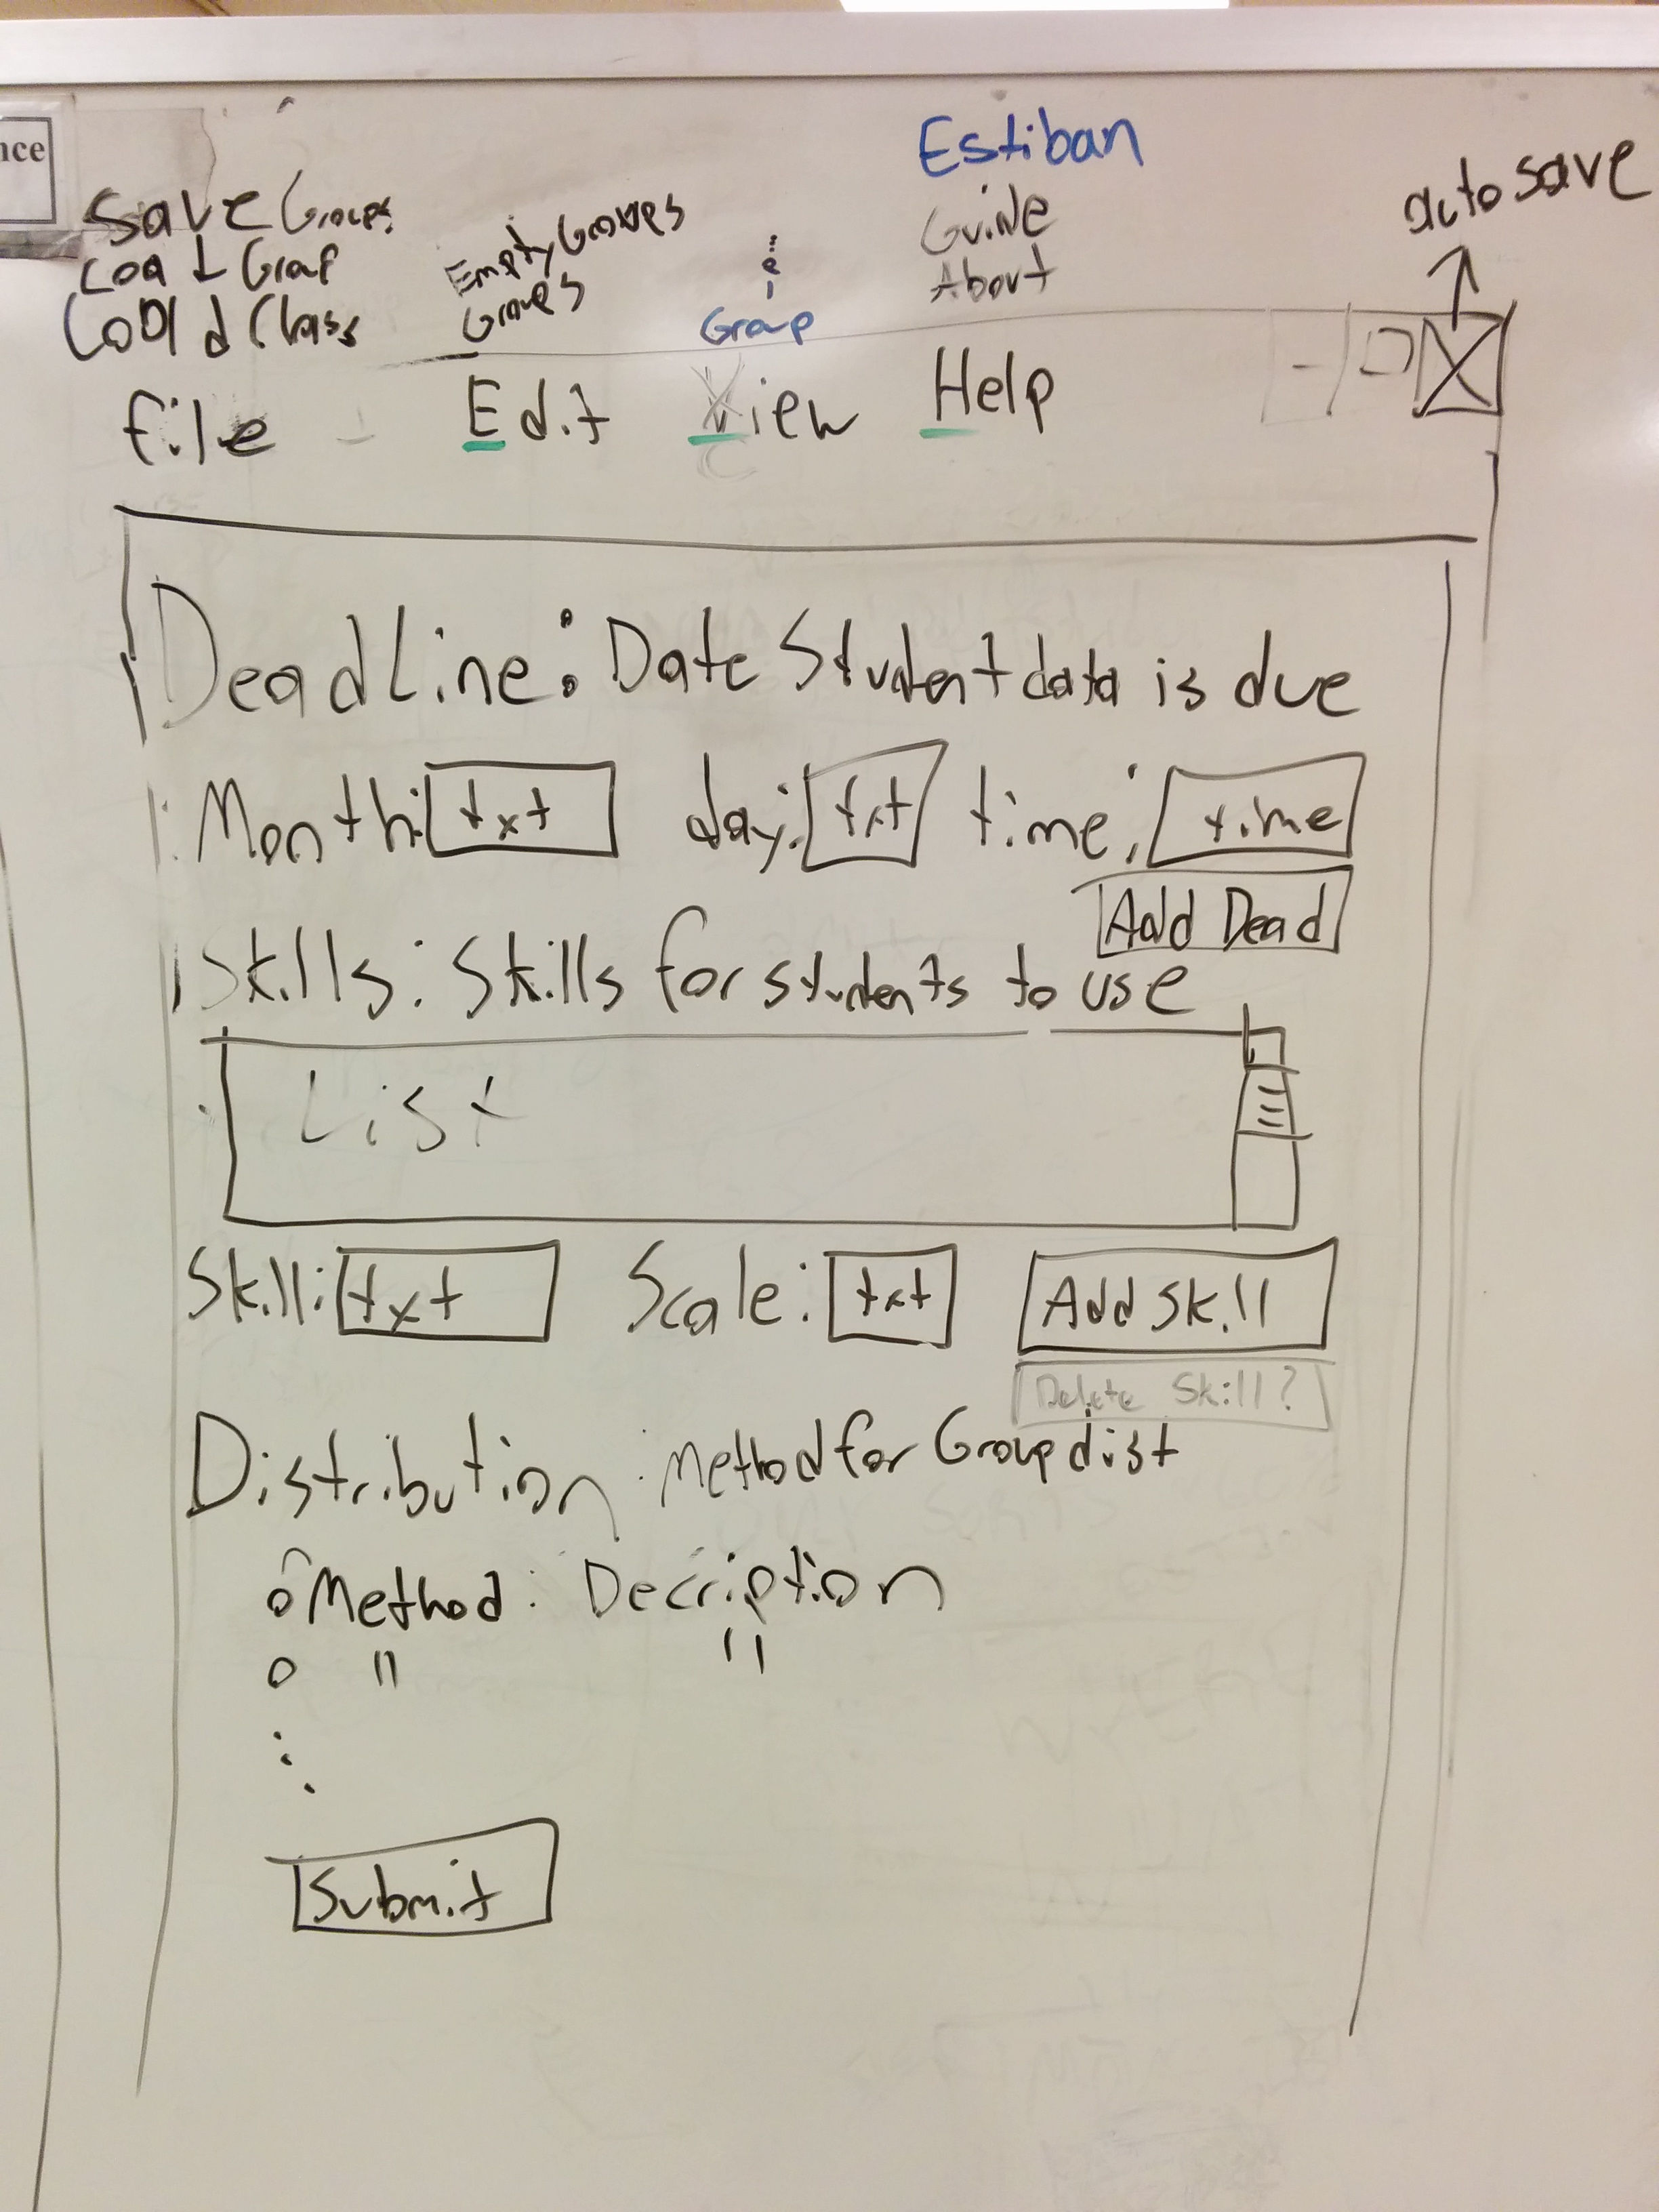 nce
Estiban
auto save
Save Groups
Guide
Empty Groups
Load Group
About
Groups
Load Class
Group
File Edit View Help
- X
DeadLine: Date Student data is due
Month: txt day: txt time: time
Add Dead
Skills: Skills for students to use
List
Skill: txt Scale: txt Add Skill
Delete Skill?
Distribution: Method for Group dist
o Method: Decription
o " "
Submit